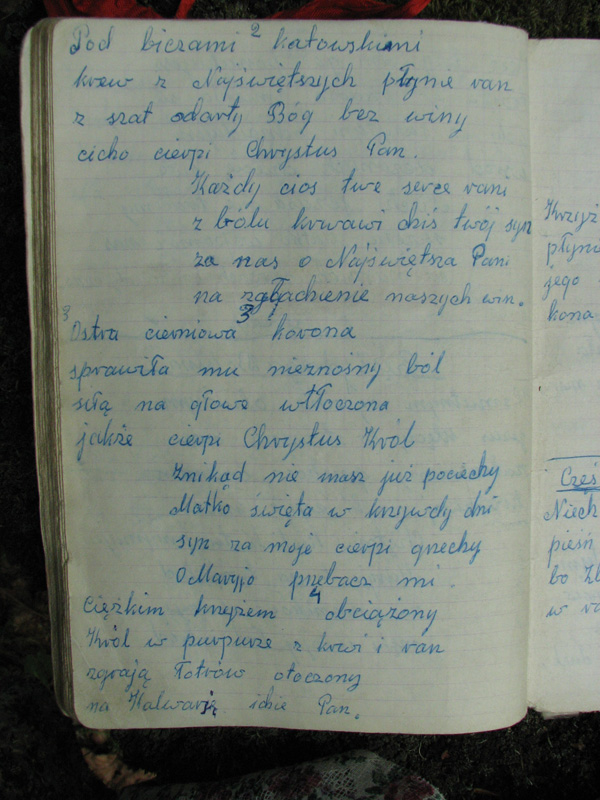 2
Pod biczami katowskimi
krew z Najświętszych płynie ran
z szat odarty Bóg bez winy
cicho cierpi Chrystus Pan.
Każdy cios twe serce rani
z bólu krwawi dziś twój syn
za nas o Najświętsza Pani
na zgładzienie naszych win.
3 3
Ostra cierniowa korona
sprawiła mu nieznośny ból
siłą na głowę wtłoczona
jakże cierpi Chrystus Król
Znikąd nie masz już pociechy
Matko święta w krzywdy dni
syn za moje cierpi grzechy
O Maryjo przebacz mi.
4
Ciężkim krzyżem obciążony
Król w purpurze z krwi i ran
zgrają łotrów otoczony
na Kalwarię idzie Pan.
Krzyż
płyni
jego
kona
Cześ
Niech
pieśń
bo
w